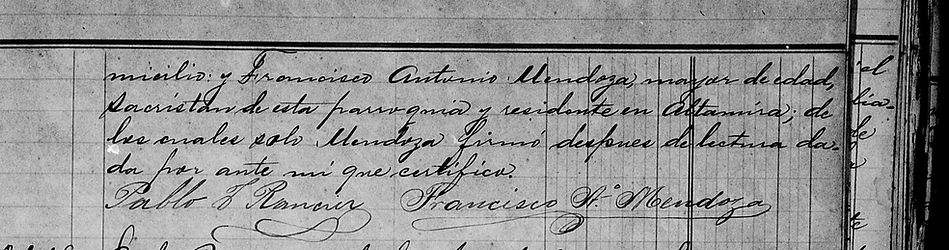 micilio: y Francisco Antonio Mendoza, mayor de edad,
sacristan de esta parroquia y residente en Altamira; de
los cuales solo Mendoza firmó despues de lectura da-
da por ante mi que certifico.
Pablo Francisco A. Mendoza